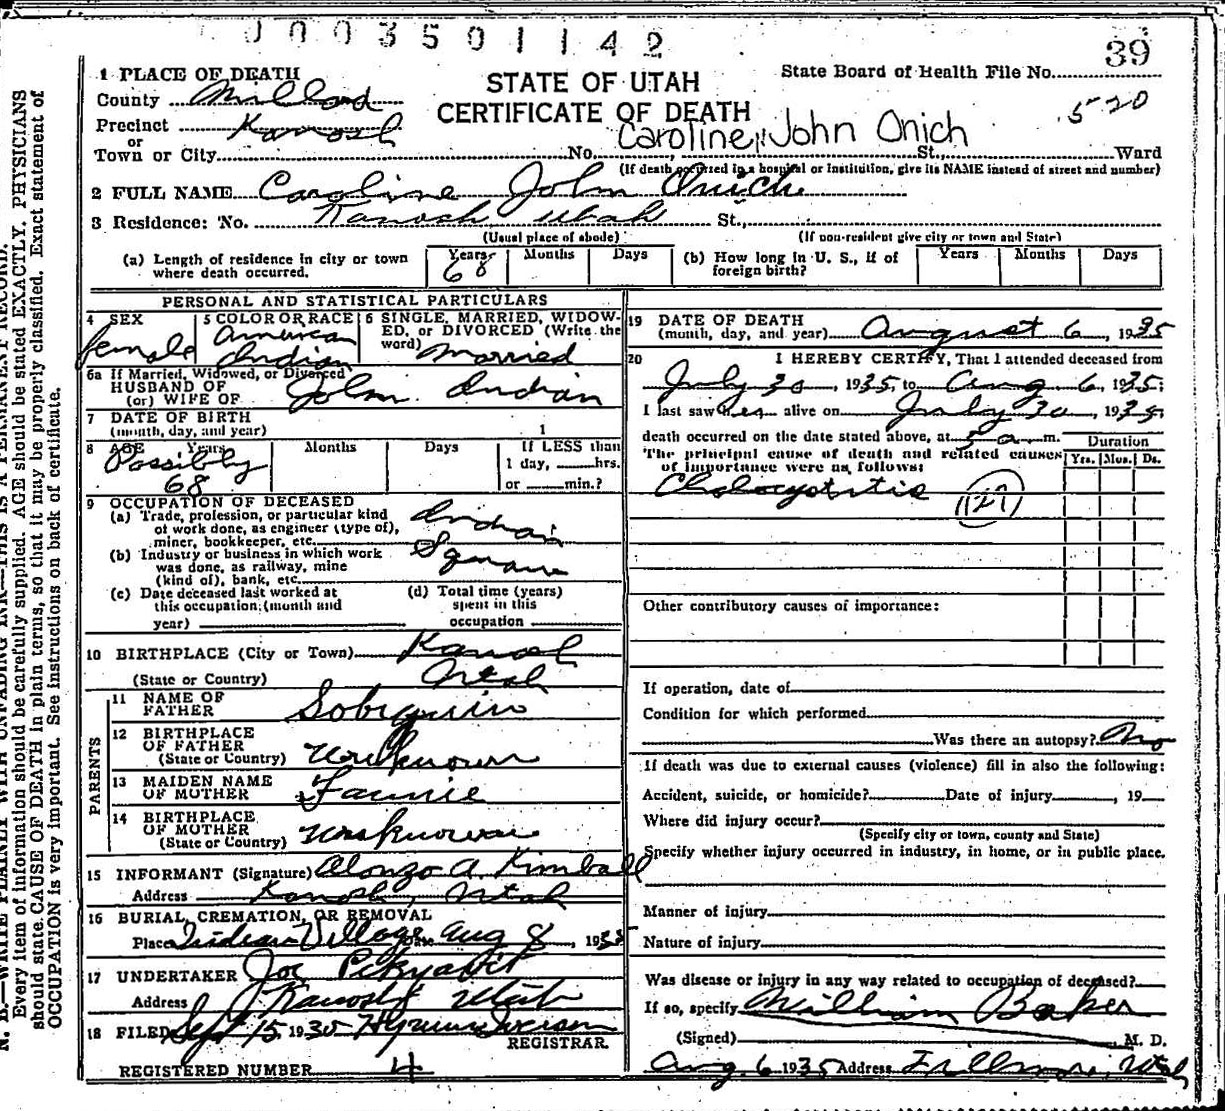 J003501142
39
1 PLACE OF DEATH
STATE OF UTAH
State Board of Health File No.
County Millard
CERTIFICATE OF DEATH
5-20
Precinct Kanosh
or
Caroline, John Onich
Town or City No. St., Ward
(If death occurred in a hospital or institution, give its NAME instead of street and number)
2 FULL NAME Caroline John Onich
3 Residence: No. Kanosh Utah St.,
(Usual place of abode) (If non-resident give city or town and State)
(a) Length of residence in city or town where death occurred. Years 68 Months Days
(b) How long in U. S., if of foreign birth? Years Months Days
PERSONAL AND STATISTICAL PARTICULARS
4 SEX female
5 COLOR OR RACE American Indian
6 SINGLE, MARRIED, WIDOWED, or DIVORCED (Write the word) Married
6a If Married, Widowed, or Divorced
HUSBAND OF
(or) WIFE OF John Indian
7 DATE OF BIRTH
(month, day, and year)
8 AGE Years Months Days If LESS than
Possibly 68
1 day, hrs.
or min.?
9 OCCUPATION OF DECEASED
(a) Trade, profession, or particular kind
of work done, as engineer (type of),
miner, bookkeeper, etc. Indian
(b) Industry or business in which work
was done, as railway, mine
(kind of), bank, etc. Squaw
(c) Date deceased last worked at
this occupation (month and
year)
(d) Total time (years)
spent in this
occupation
10 BIRTHPLACE (City or Town) Kanosh
(State or Country) Utah
PARENTS
11 NAME OF
FATHER
12 BIRTHPLACE
OF FATHER
(State or Country) Unknown
13 MAIDEN NAME
OF MOTHER Fannie
14 BIRTHPLACE
OF MOTHER
(State or Country) Unknown
15 INFORMANT (Signature) Alonzo A. Kimball
Address Kanosh, Utah
16 BURIAL, CREMATION, OR REMOVAL
Place Indian Village Date Aug 8, 1935
17 UNDERTAKER Joe Pikyavit
Address Kanosh Utah
18 FILED Sept 15, 1935 Hyrum Iverson
REGISTRAR.
REGISTERED NUMBER 4
19 DATE OF DEATH
(month, day, and year) August 6, 1935
20 I HEREBY CERTIFY, That I attended deceased from
July 30, 1935, to Aug 6, 1935;
I last saw her alive on July 30, 1935,
death occurred on the date stated above, at 5 a m.
Duration
The principal cause of death and related causes
of importance were as follows:
Yrs. Mos. Ds.
Cholocystitis 127
Other contributory causes of importance:
If operation, date of
Condition for which performed
Was there an autopsy? No
If death was due to external causes (violence) fill in also the following:
Accident, suicide, or homicide? Date of injury , 19
Where did injury occur?
(Specify city or town, county and State)
Specify whether injury occurred in industry, in home, or in public place.
Manner of injury
Nature of injury
Was disease or injury in any way related to occupation of deceased?
If so, specify William Baker
(Signed) M. D.
Aug. 6 1935 Address Fillmore, Utah
N. B.—WRITE PLAINLY WITH UNFADING INK—THIS IS A PERMANENT RECORD.
Every item of information should be carefully supplied. AGE should be stated EXACTLY. PHYSICIANS
should state CAUSE OF DEATH in plain terms, so that it may be properly classified. Exact statement of
OCCUPATION is very important. See instructions on back of certificate.